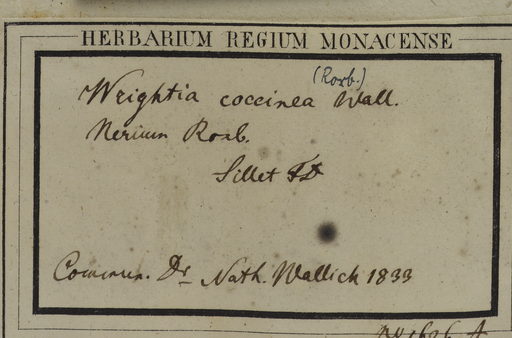 HERBARIUM REGIUM MONACENSE
(Roxb.)
Wrightia coccinea Wall.
Nerium Roxb.
Sillet FD
Commun. Dr Nath. Wallich 1833
No 1626 A